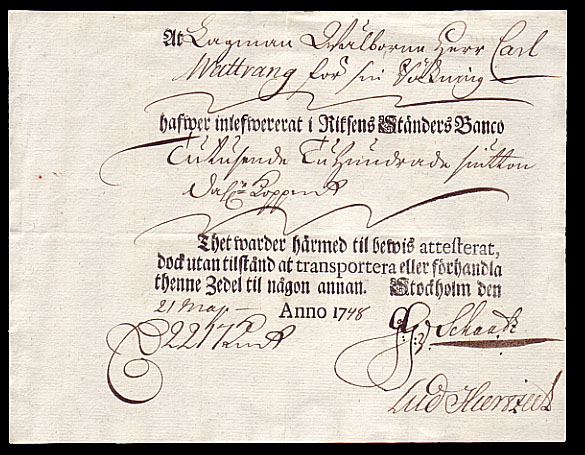 At Lagman Wälborne Herr Carl
Wattrang för sin Räkning
hafwer inlefwererat i Riksens Ständers Banco
Tutusende Tuhundrade siutton
Dal. Koppmt
Thet warder härmed til bewis attesterat,
dock utan tilstånd at transportera eller förhandla
thenne Zedel til någon annan. Stockholm den
21 May Anno 1748
D 2217 Kmt Schaadt
Lud